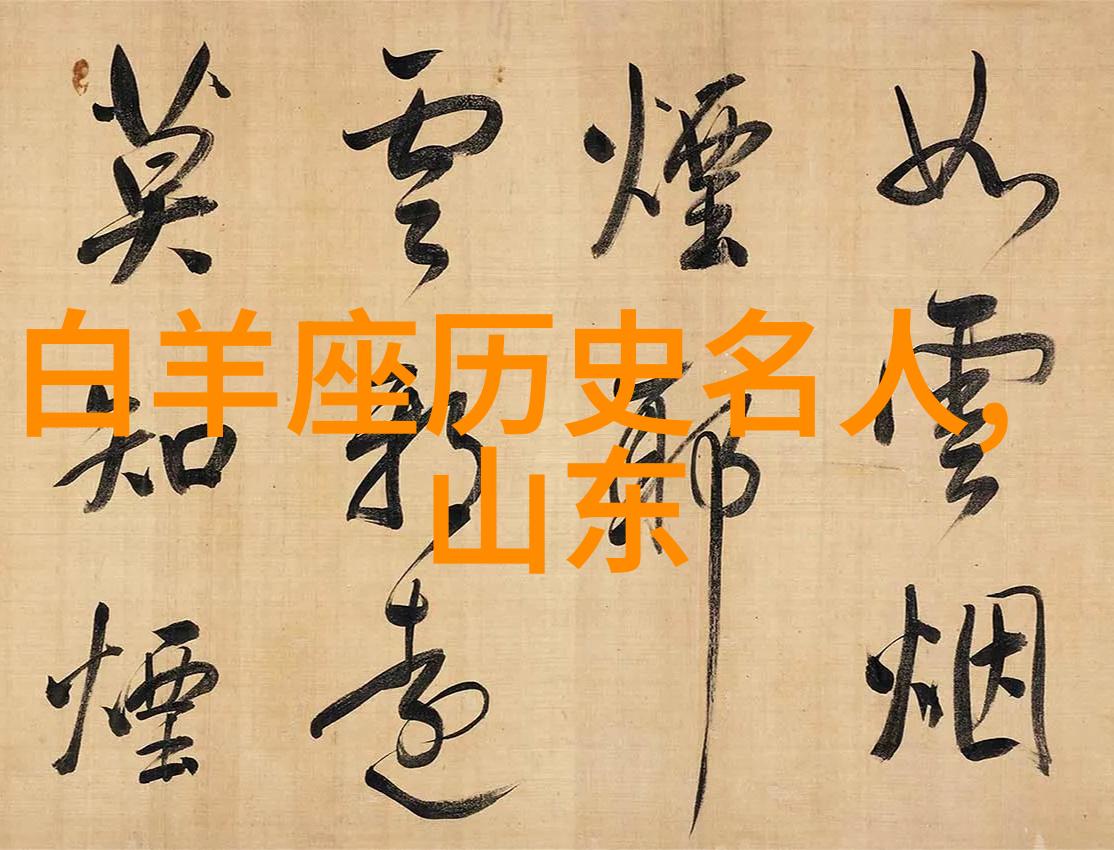 如雲烟
煙耶
云耶遠
莫知煙
白羊座历史名人,
山东